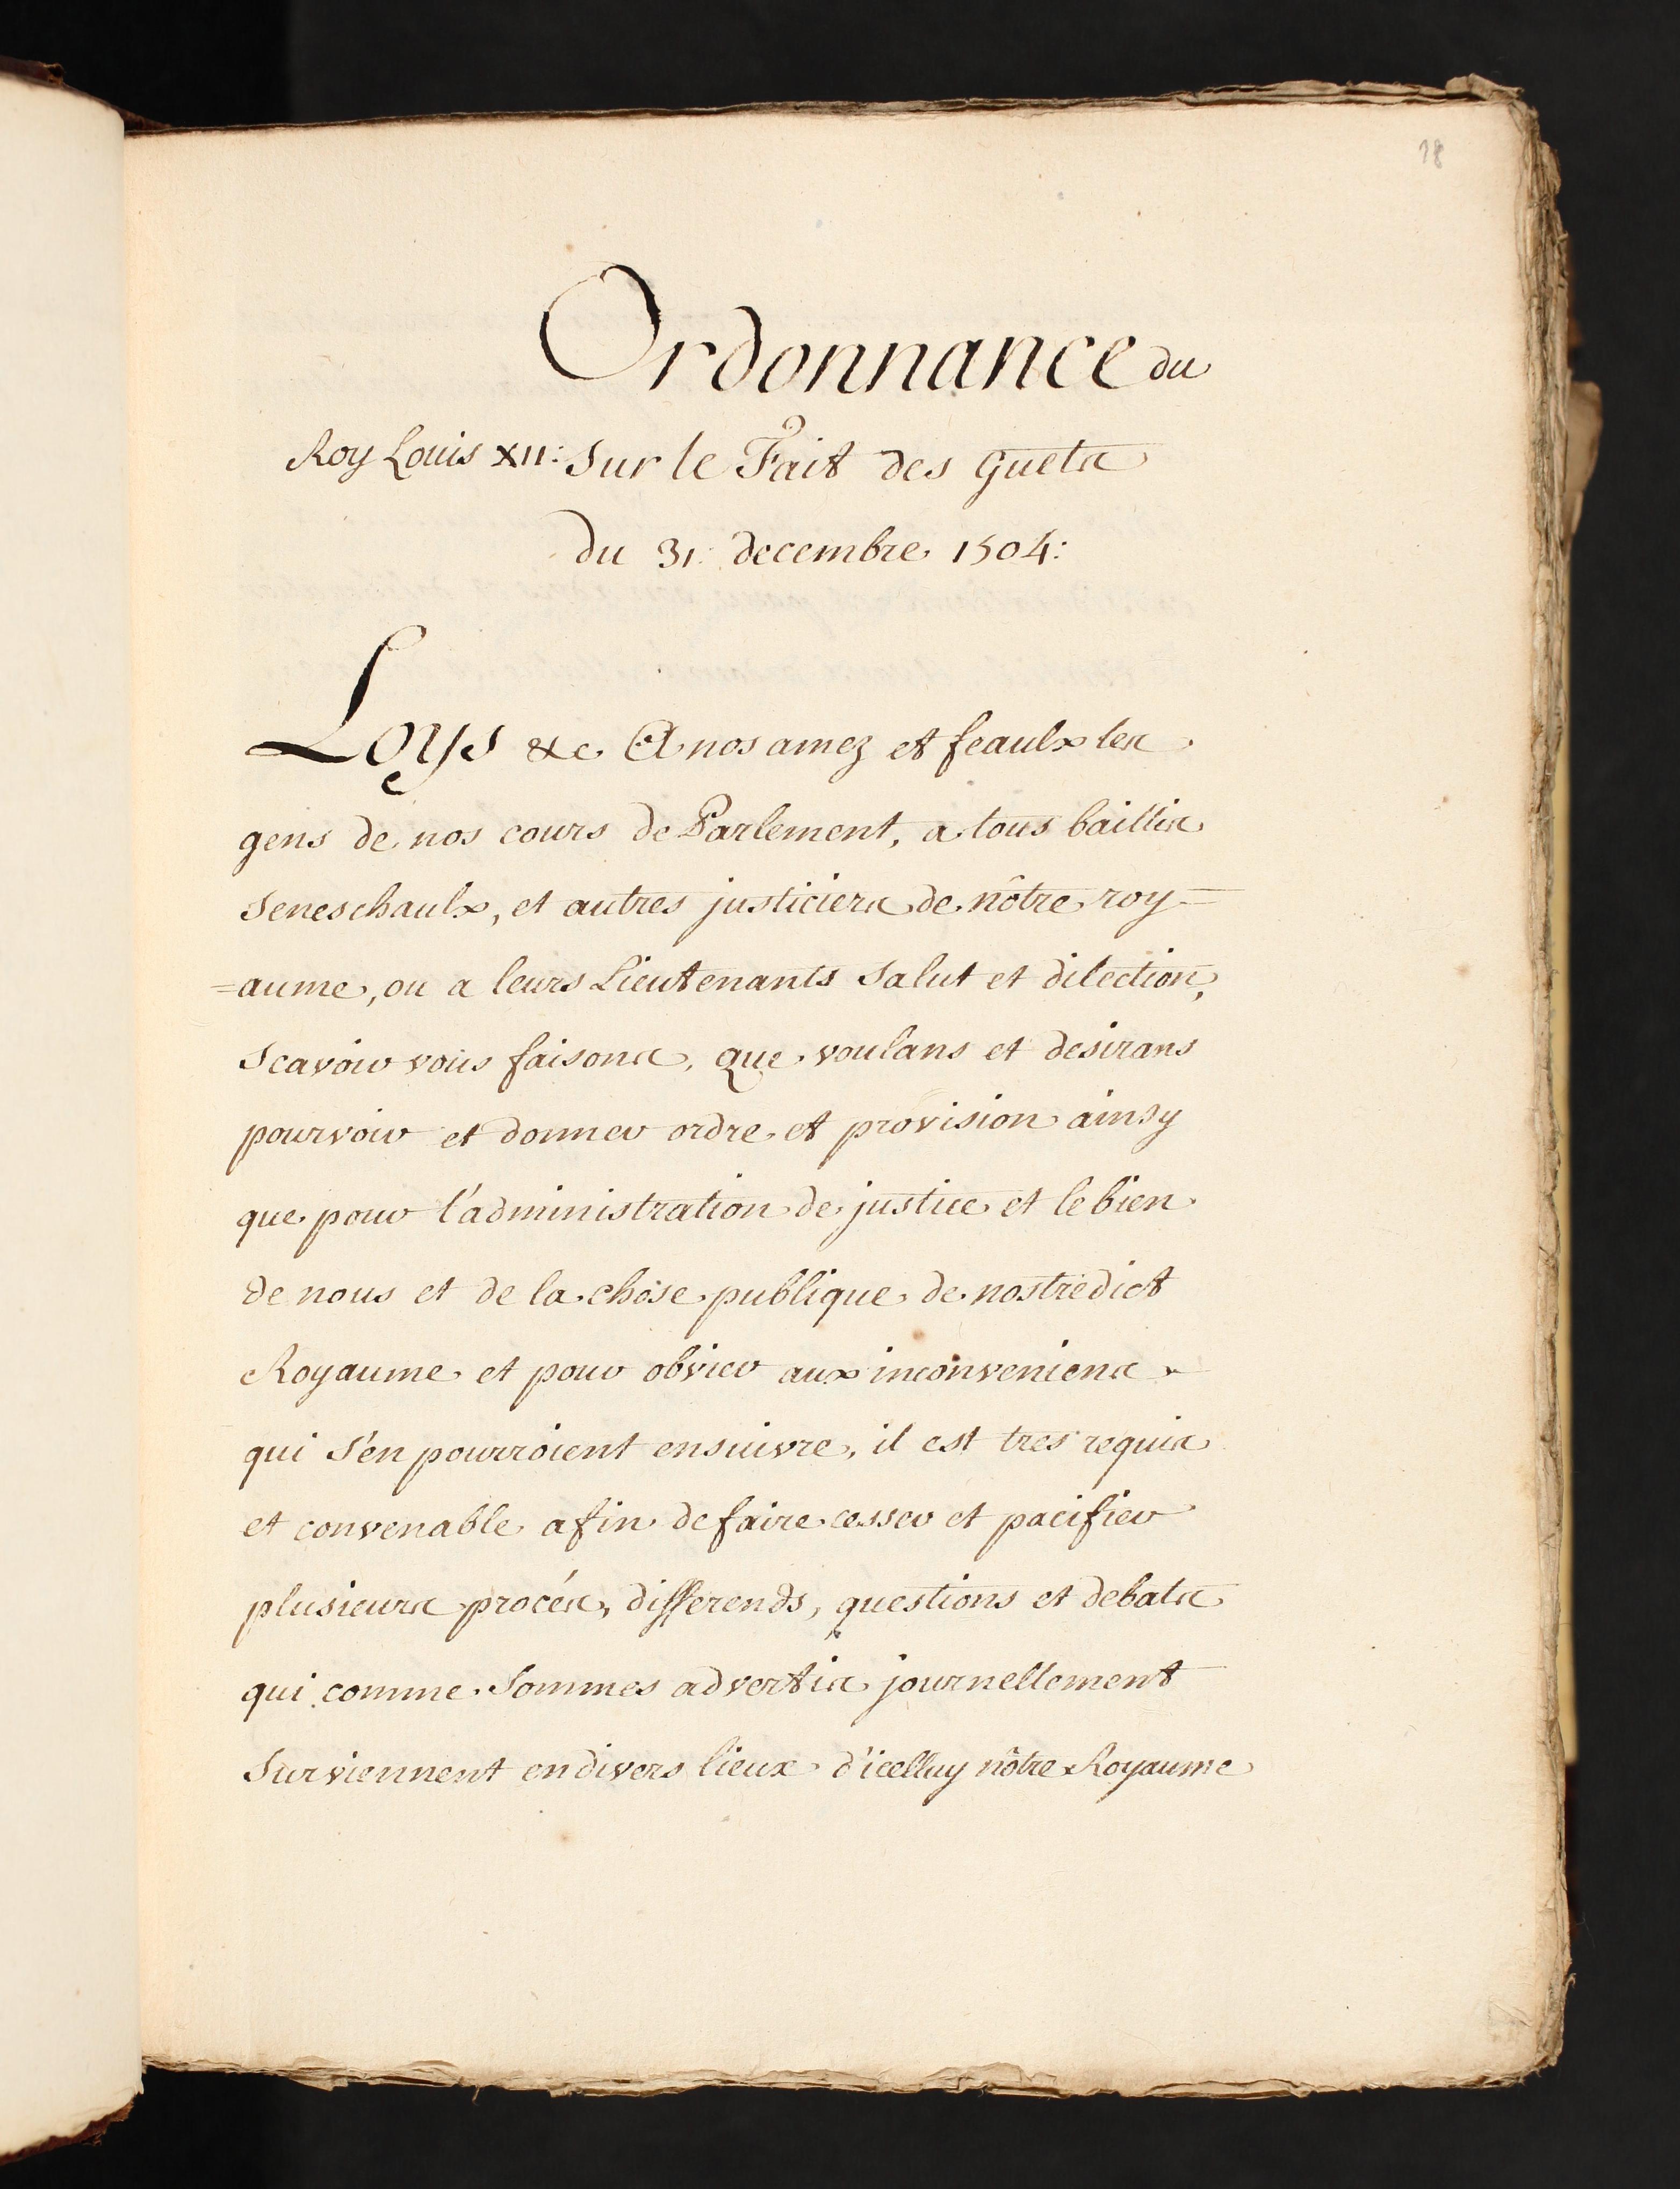 18
Ordonnance du
Roy Louis XII: Sur le Fait des Guets
du 31. decembre 1504:
Loys &c A nos amez et feaulx les
gens de nos cours de Parlement, a tous baillis
Seneschaulx, et autres justiciers de nôtre roy=
=aume, ou a leurs Lieutenants Salut et dilection,
Scavoir vous faisons, que voulans et desirans
pourvoir et donner ordre et provision ainsy
que pour l'administration de justice et le bien
de nous et de la chose publique de nostredict
Royaume et pour obvier aux inconveniens
qui S'en pourroient ensuivre, il est tres requis
et convenable afin de faire cesser et pacifier
plusieurs procés, differends, questions et debats
qui comme Sommes advertis journellement
Surviennent en divers lieux d'icelluy nôtre Royaume